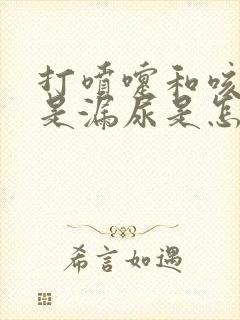 打喷嚏和咳
是漏尿是怎
希言如遇